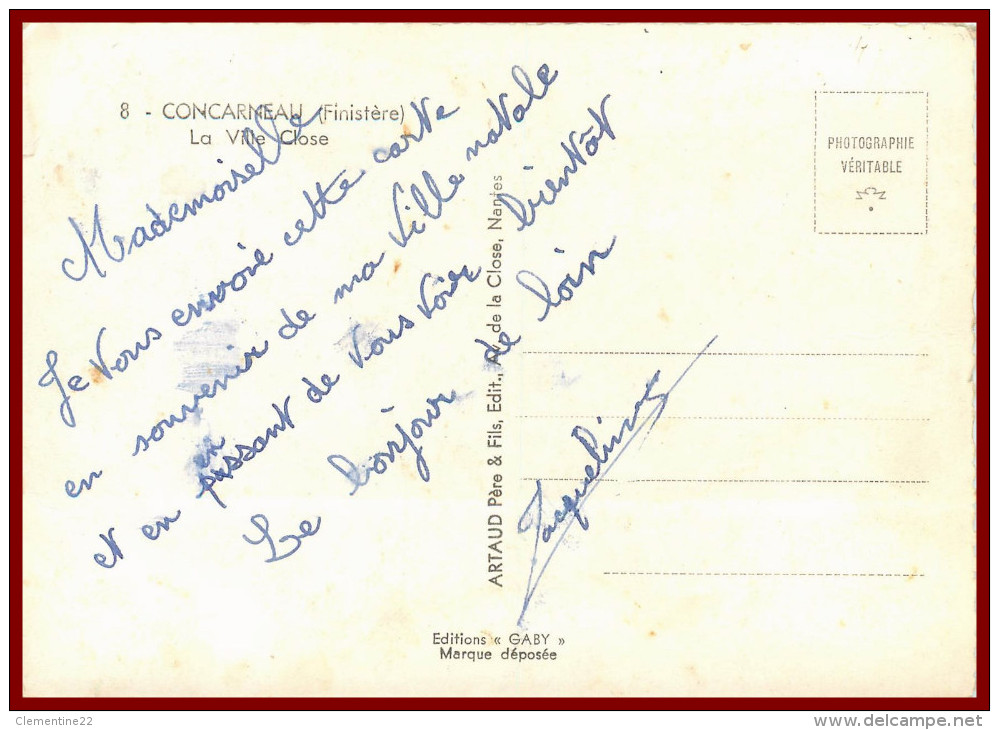 8 - CONCARNEAU (Finistère)
La Ville Close
Mademoiselle
Je Vous envoie cette carte
en souvenir de ma Ville natale
et en passant de Vous Voir bientôt
en
Le bonjour de loin
Jacqueline
PHOTOGRAPHIE
VÉRITABLE
ARTAUD Père & Fils, Edit., Av. de la Close, Nantes
Editions « GABY »
Marque déposée
Clementine22
www.delcampe.net